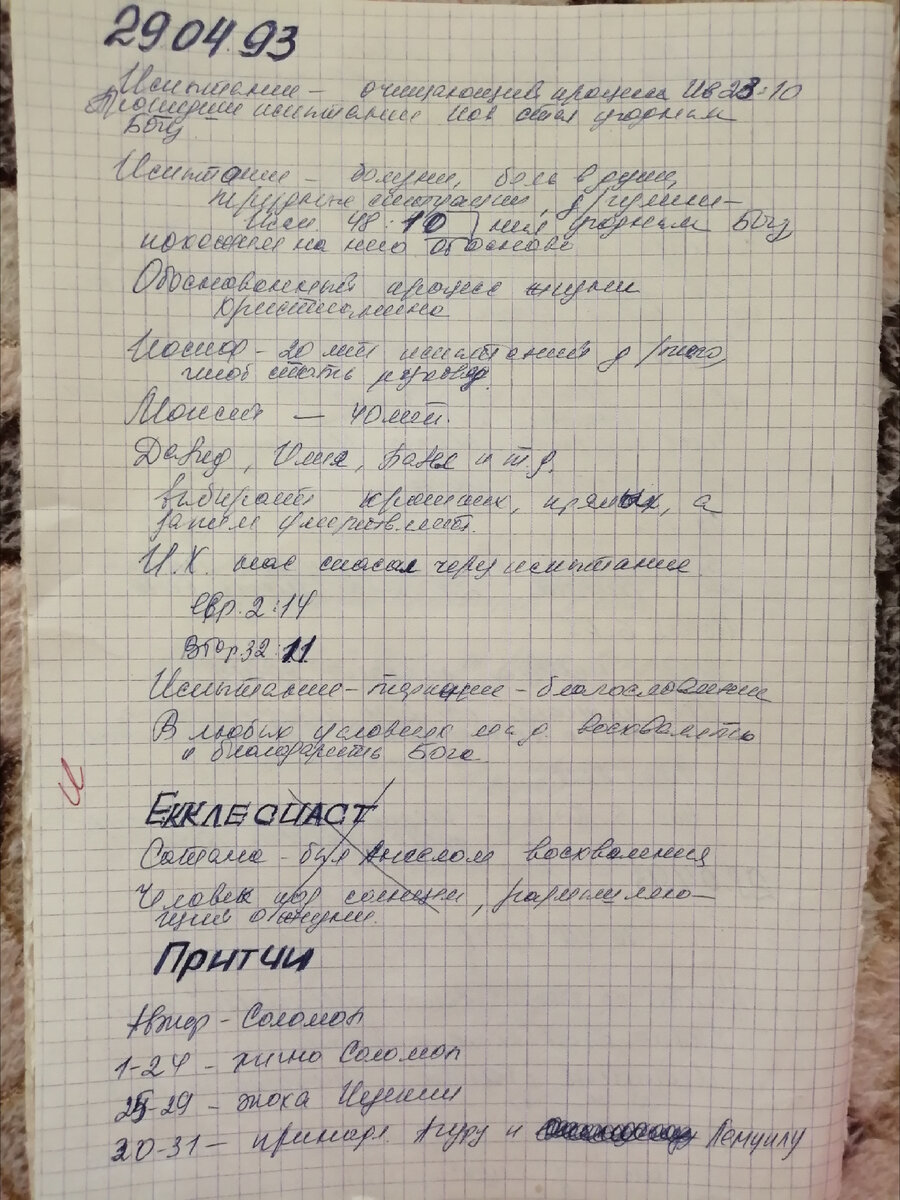 29.04.93
Испытание – очищающий процесс Ив 23:10
Прошедши испытание Иов стал угодным
Богу
Испытание – болезни, боль в душе,
трудные ситуации, д/измене-
Исаи. 48:10 ния угодным Богу,
похожим на него
Обоснованный процесс жизни
христианина
Иосиф – 20 лет испытаний д/того,
чтоб стать руковод.
Моисей — 40 лет.
Давид, Илия, Павел и т.д.
выбирает хороших, прямых, а
затем умертвляет.
И.Х. нас спасал через испытание
Евр. 2:14
Втор 32:11
Испытание – терпение – благословение
В любых условиях мы д. восхвалять
и благодарить Бога
ЕККЛЕСИАСТ
Сатана – был Ангелом восхваления
Человек под солнцем, размышляю-
щий о жизни.
ПРИТЧИ
Автор – Соломон
1-24 – лично Соломон
25-29 – эпоха Иезекии
30-31 – принадл Агуру и Лемуилу